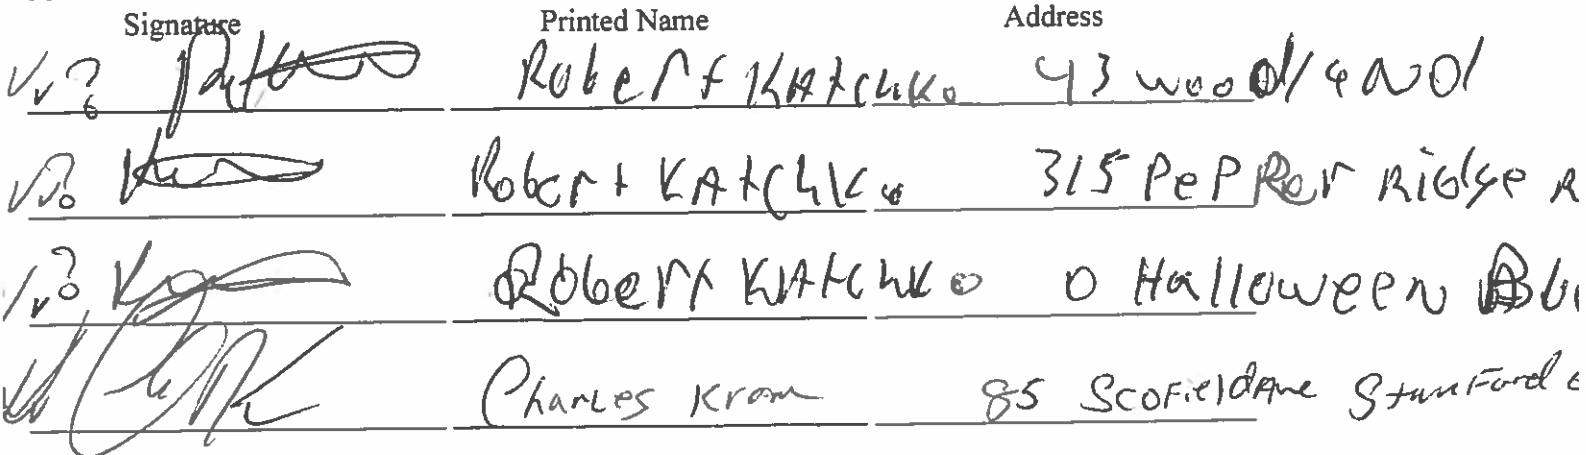 Signature Printed Name Address
Robert KAtchko 43 woodland
Robert KAtchko 315 PePPer Ridge R
Robert KAtchko 0 Halloween
Charles Krom 85 Scofield Ave Stamford